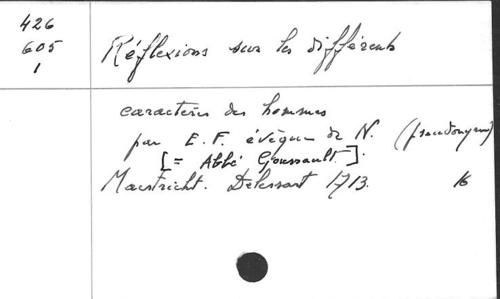 426
605
1
Réflexions sur les différents
caracteres des hommes
par E. F. évêque de N. (pseudonyme)
[= Abbé Goussault].
Maestricht. Delessart 1713. 16